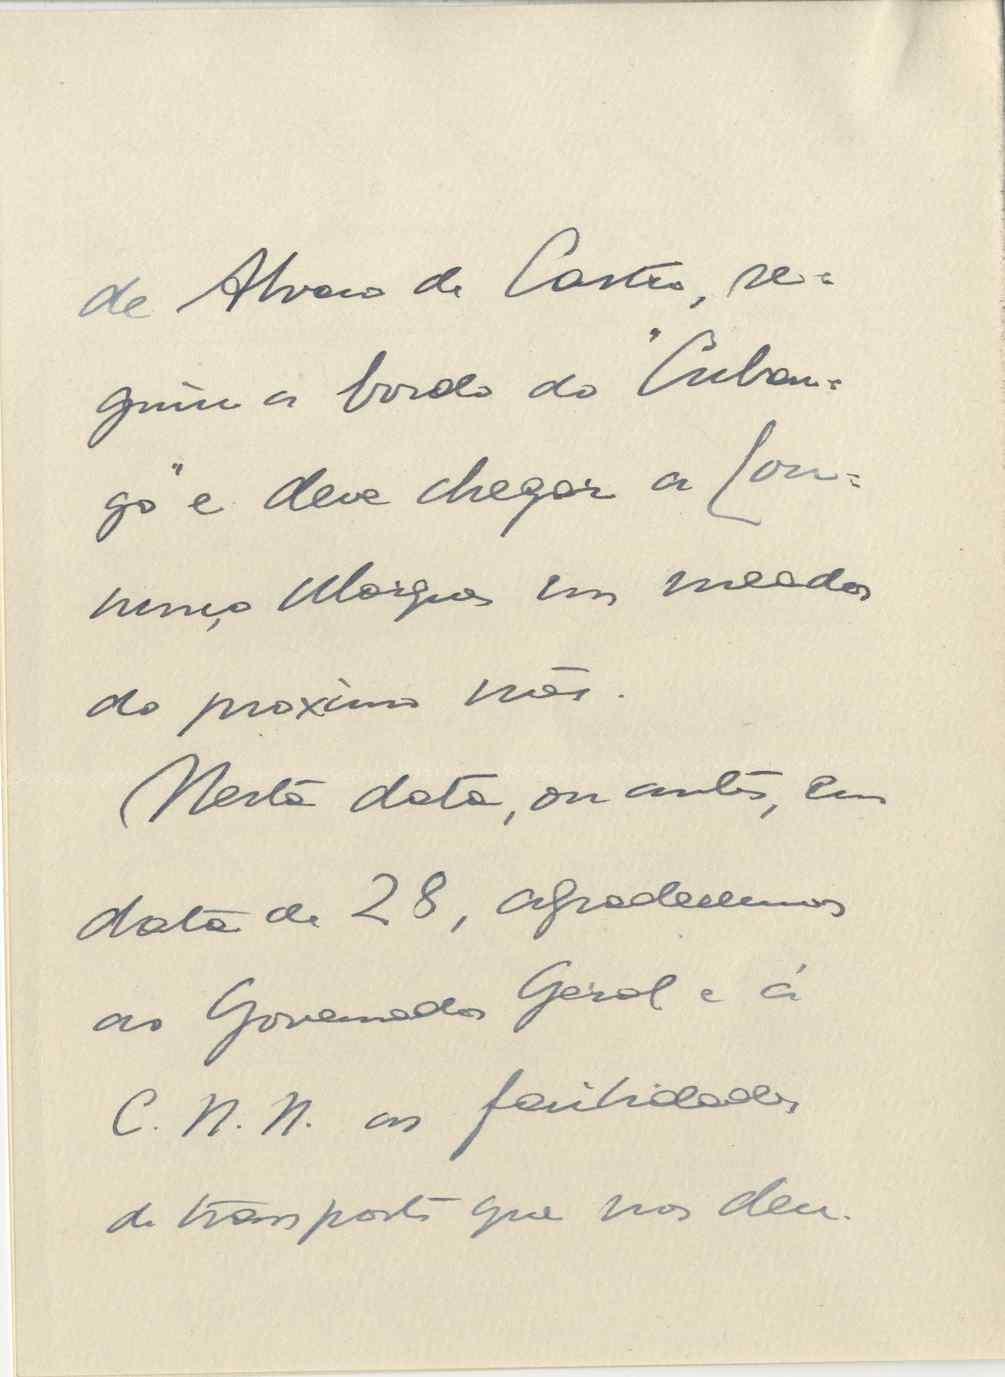 de Alvaro de Castro, se=
guiu a bordo do "Cuban=
go" e deve chegar a Lou=
renço Marques em meados
do proximo mês.
Nesta data, ou antes, em
data de 28, agradecemos
ao Governador Geral e á
C. N. N. as facilidades
de transporte que nos deu.